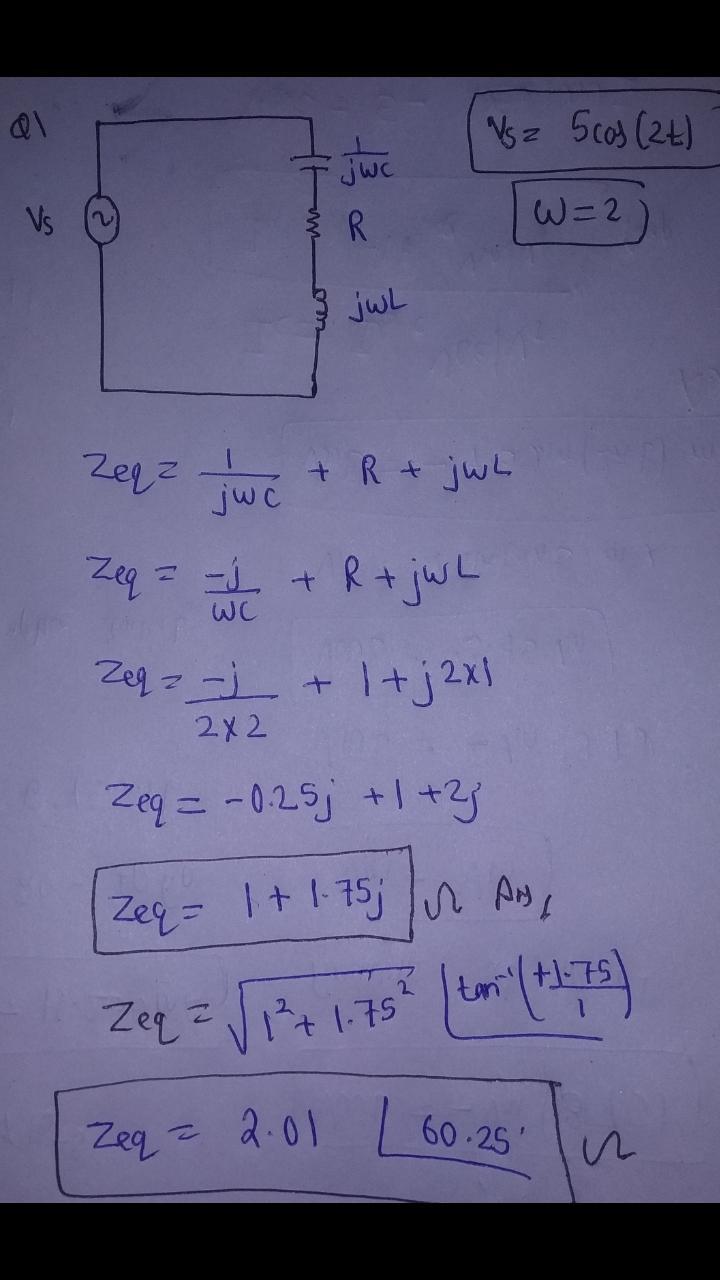 Q1
Vs = 5cos(2t)
1/jwC
Vs
R
W = 2
jwL
Zeq = 1/jwC + R + jwL
Zeq = -j/WC + R + jwL
Zeq = -j/2x2 + 1 + j2x1
Zeq = -0.25j + 1 + 2j
Zeq = 1 + 1.75j Ω Ans
Zeq = √1² + 1.75² ∠tan⁻¹(+1.75/1)
Zeq = 2.01 ∠60.25° Ω